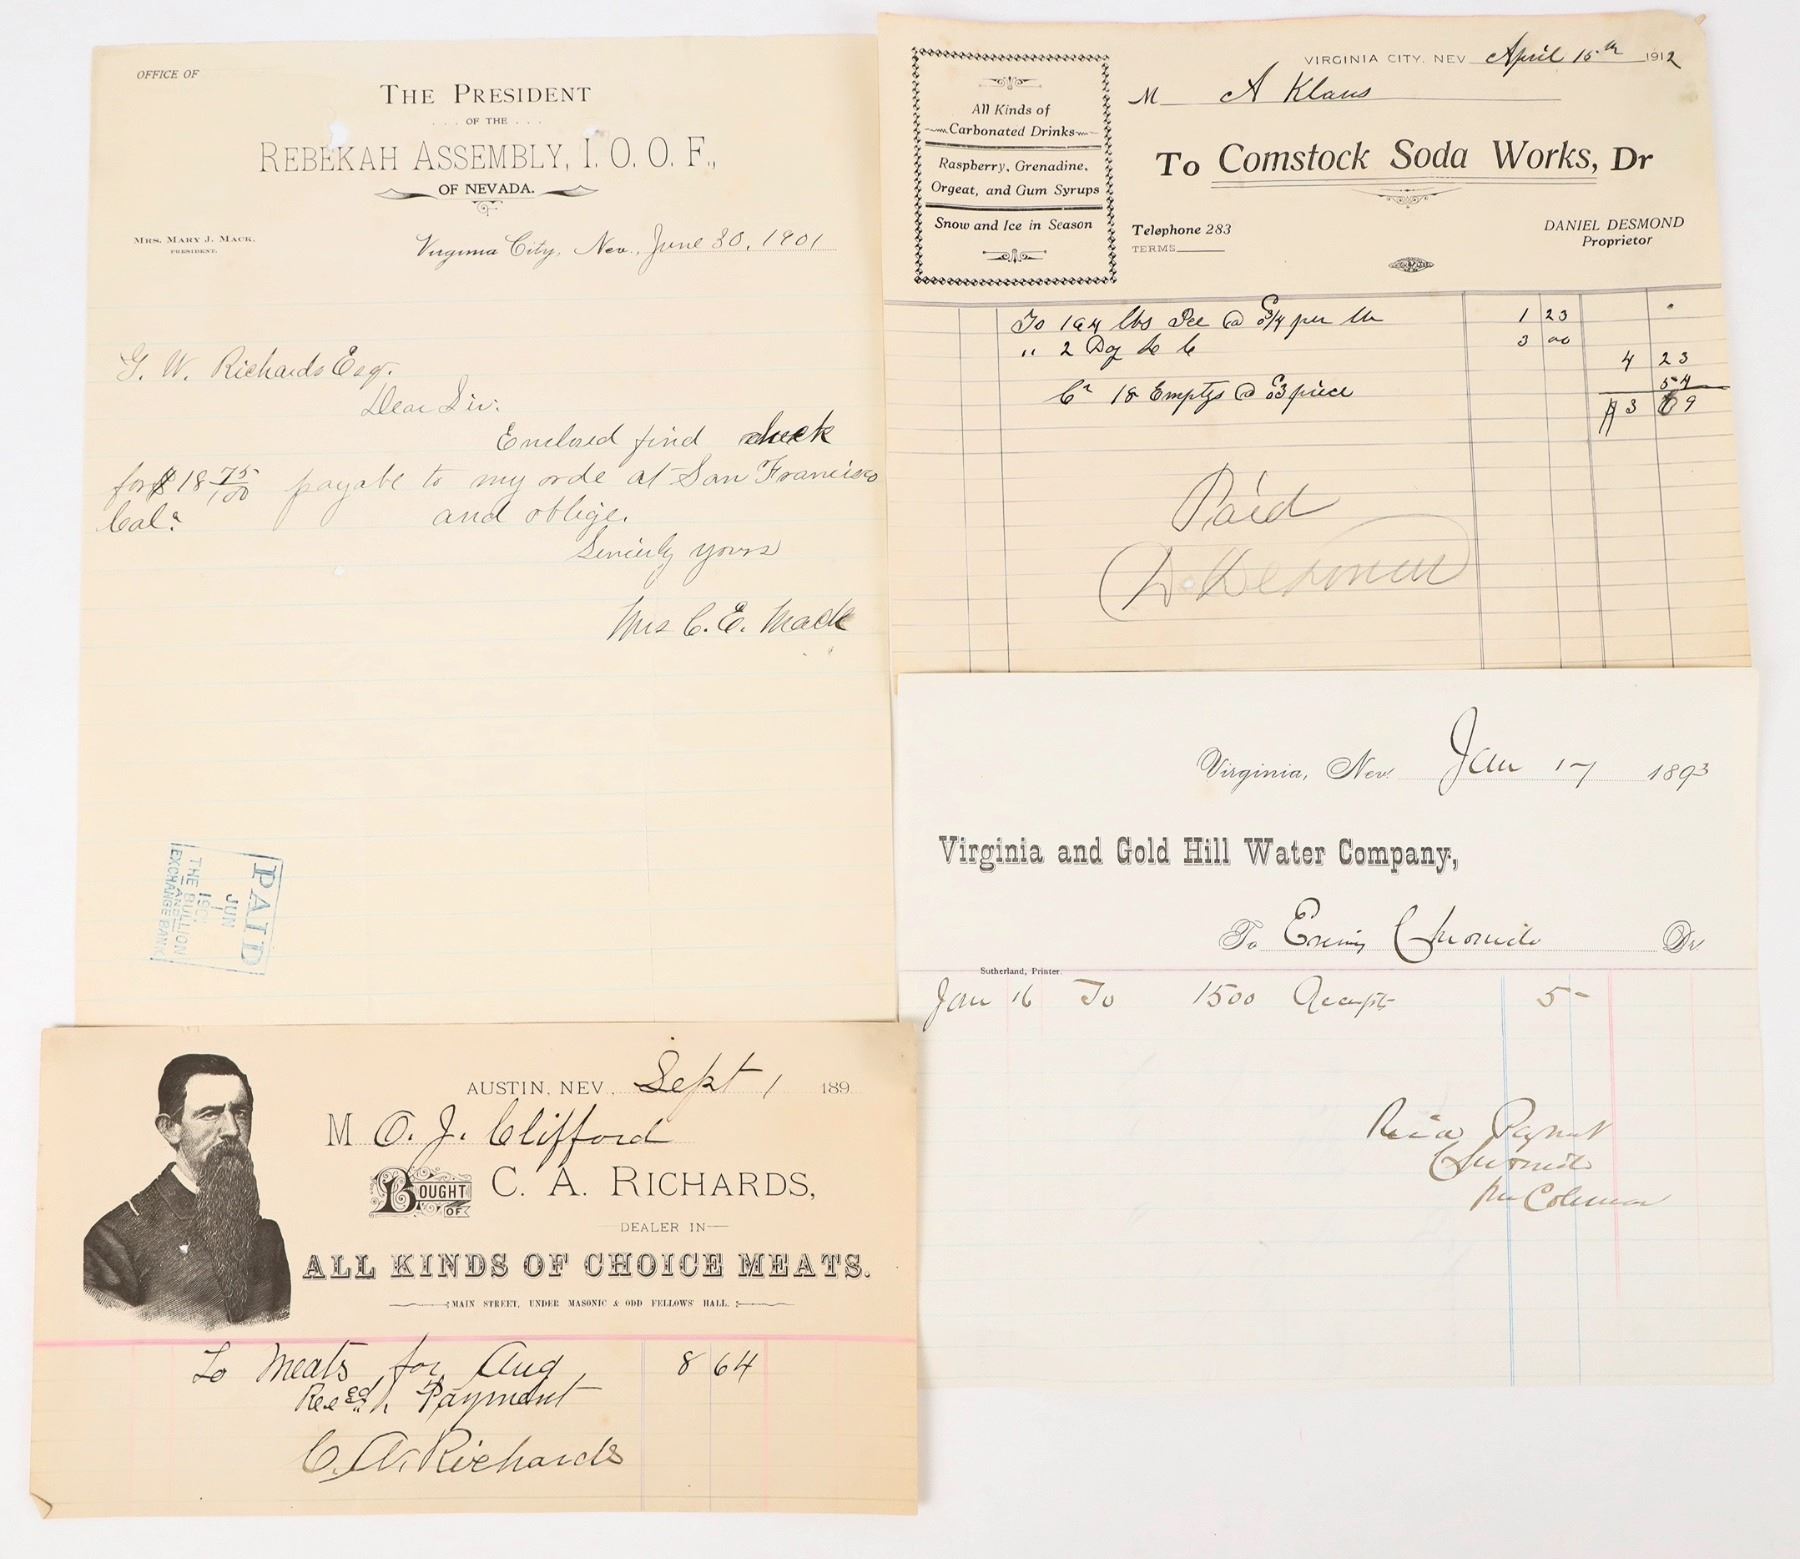 OFFICE OF
THE PRESIDENT
. . . OF THE . . .
REBEKAH ASSEMBLY, I. O. O. F.,
OF NEVADA.
MRS. MARY J. MACK,
PRESIDENT.
Virginia City, Nev., June 30, 1901
G. W. Richards Esq.
Dear Sir:
Enclosed find check
for $18 75/100 payabe to my orde at San Francisco
Cal.
and oblige.
Sincerly yours
Mrs C. E. Mack
PAID
JUN
1901
THE BULLION
AND
EXCHANGE BANK
VIRGINIA CITY, NEV April 15th 1912
M A Klaus
To Comstock Soda Works, Dr
All Kinds of
Carbonated Drinks
Raspberry, Grenadine,
Orgeat, and Gum Syrups
Snow and Ice in Season
Telephone 283
TERMS
DANIEL DESMOND
Proprietor
To 164 lbs Ice @ ¾ per lb 1 23
" 2 Doz 3 00
4 23
Cr 18 Emptys @ 03 piece 54
$3 69
Paid
D. Desmond
Virginia, Nev. Jan 17 1893
Virginia and Gold Hill Water Company,
To Evening Chronicle Dr
Sutherland, Printer.
Jan 16 To 1500 Receipts 5-
Payment
Chronicle
per Coleman
AUSTIN, NEV., Sept 1 189
M O. J. Clifford
BOUGHT OF C. A. RICHARDS,
DEALER IN
ALL KINDS OF CHOICE MEATS.
MAIN STREET, UNDER MASONIC & ODD FELLOWS' HALL.
To Meats for Aug 8 64
Payment
C. A. Richards